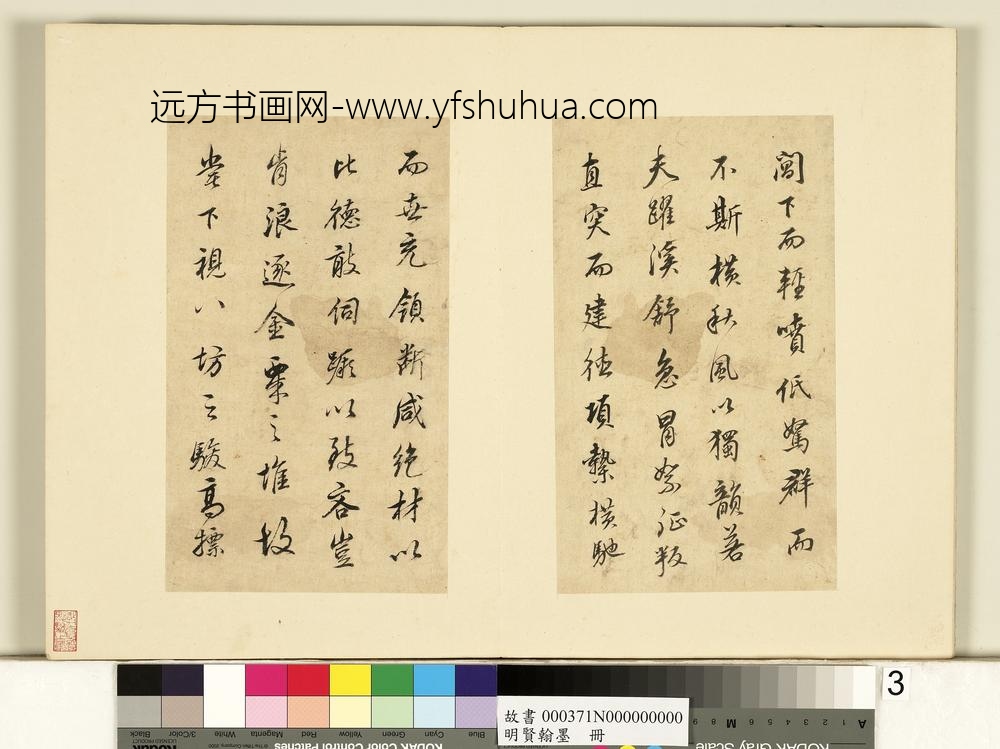 远方书画网-www.yfshuhua.com
閶下而輕噴低駑群而
不斯橫秋風以獨韻若
夫躍溪舒急冒絮征叛
直突而建德項縶橫馳
而充領斷咸絕材以
比德敢伺蹶以致吝豈
肯浪逐金粟之堆故
下視八坊之駿高摽
3
故書 000371N000000000
明賢翰墨 冊
KODAK Color Control Patches
KODAK Gray Scale
Blue
Cyan
Green
Yellow
Red
Magenta
White
3/Color
Black
Kodak
A 1 2 3 4 5 6 M 8 9